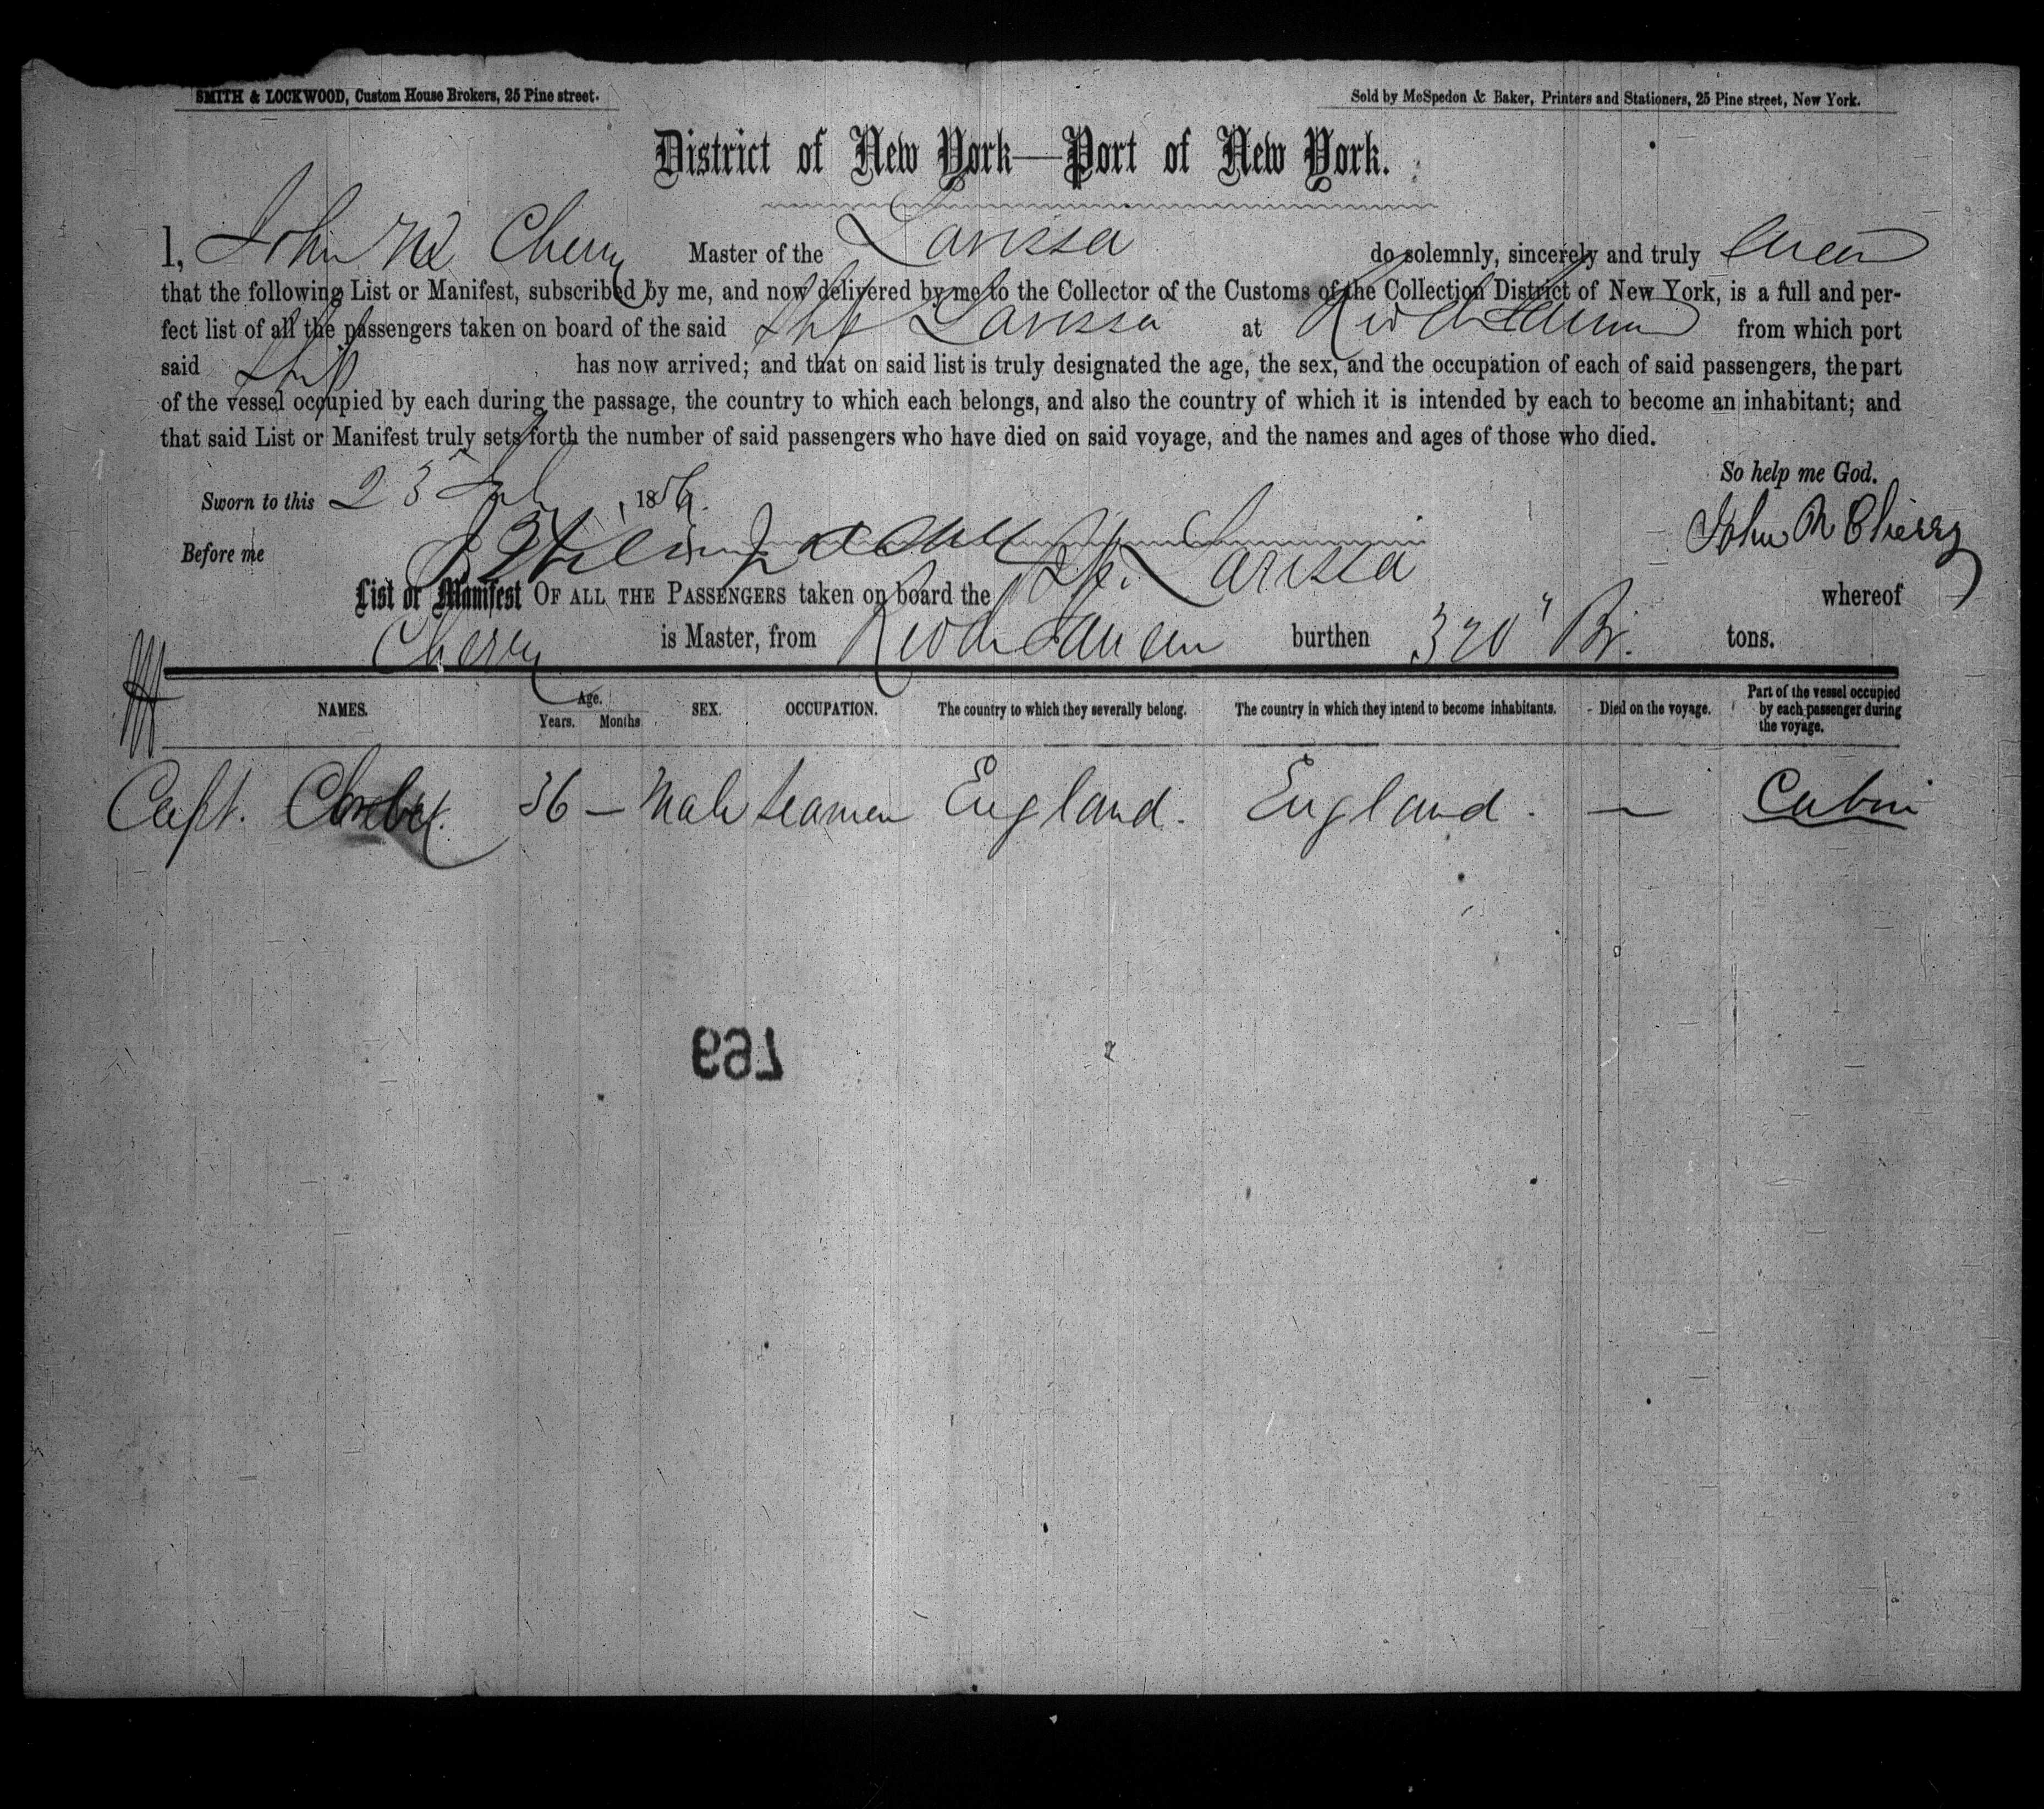 SMITH & LOCKWOOD, Custom House Brokers, 25 Pine street.
Sold by McSpedon & Baker, Printers and Stationers, 25 Pine street, New York.
District of New York—Port of New York.
I, John M Cherry Master of the Larissa do solemnly, sincerely and truly swear
that the following List or Manifest, subscribed by me, and now delivered by me to the Collector of the Customs of the Collection District of New York, is a full and per-
fect list of all the passengers taken on board of the said Ship Larissa at Rio de Janeiro from which port
said Ship has now arrived; and that on said list is truly designated the age, the sex, and the occupation of each of said passengers, the part
of the vessel occupied by each during the passage, the country to which each belongs, and also the country of which it is intended by each to become an inhabitant; and
that said List or Manifest truly sets forth the number of said passengers who have died on said voyage, and the names and ages of those who died.
So help me God.
Sworn to this 23 1856.
John M Cherry
Before me
List or Manifest OF ALL THE PASSENGERS taken on board the Larissa whereof
Cherry is Master, from Rio de Janeiro burthen 320 Br. tons.
NAMES. Age. Years. Months SEX. OCCUPATION. The country to which they severally belong. The country in which they intend to become inhabitants. Died on the voyage. Part of the vessel occupied by each passenger during the voyage.
Capt. 36 — Male Seaman England. England. — Cabin
769